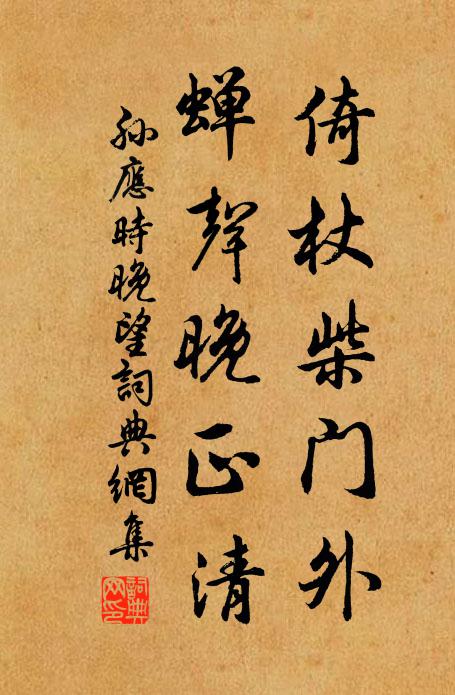 倚杖柴门外
蝉聲晚正清
孫應時晚望詞典網集
詞典網印